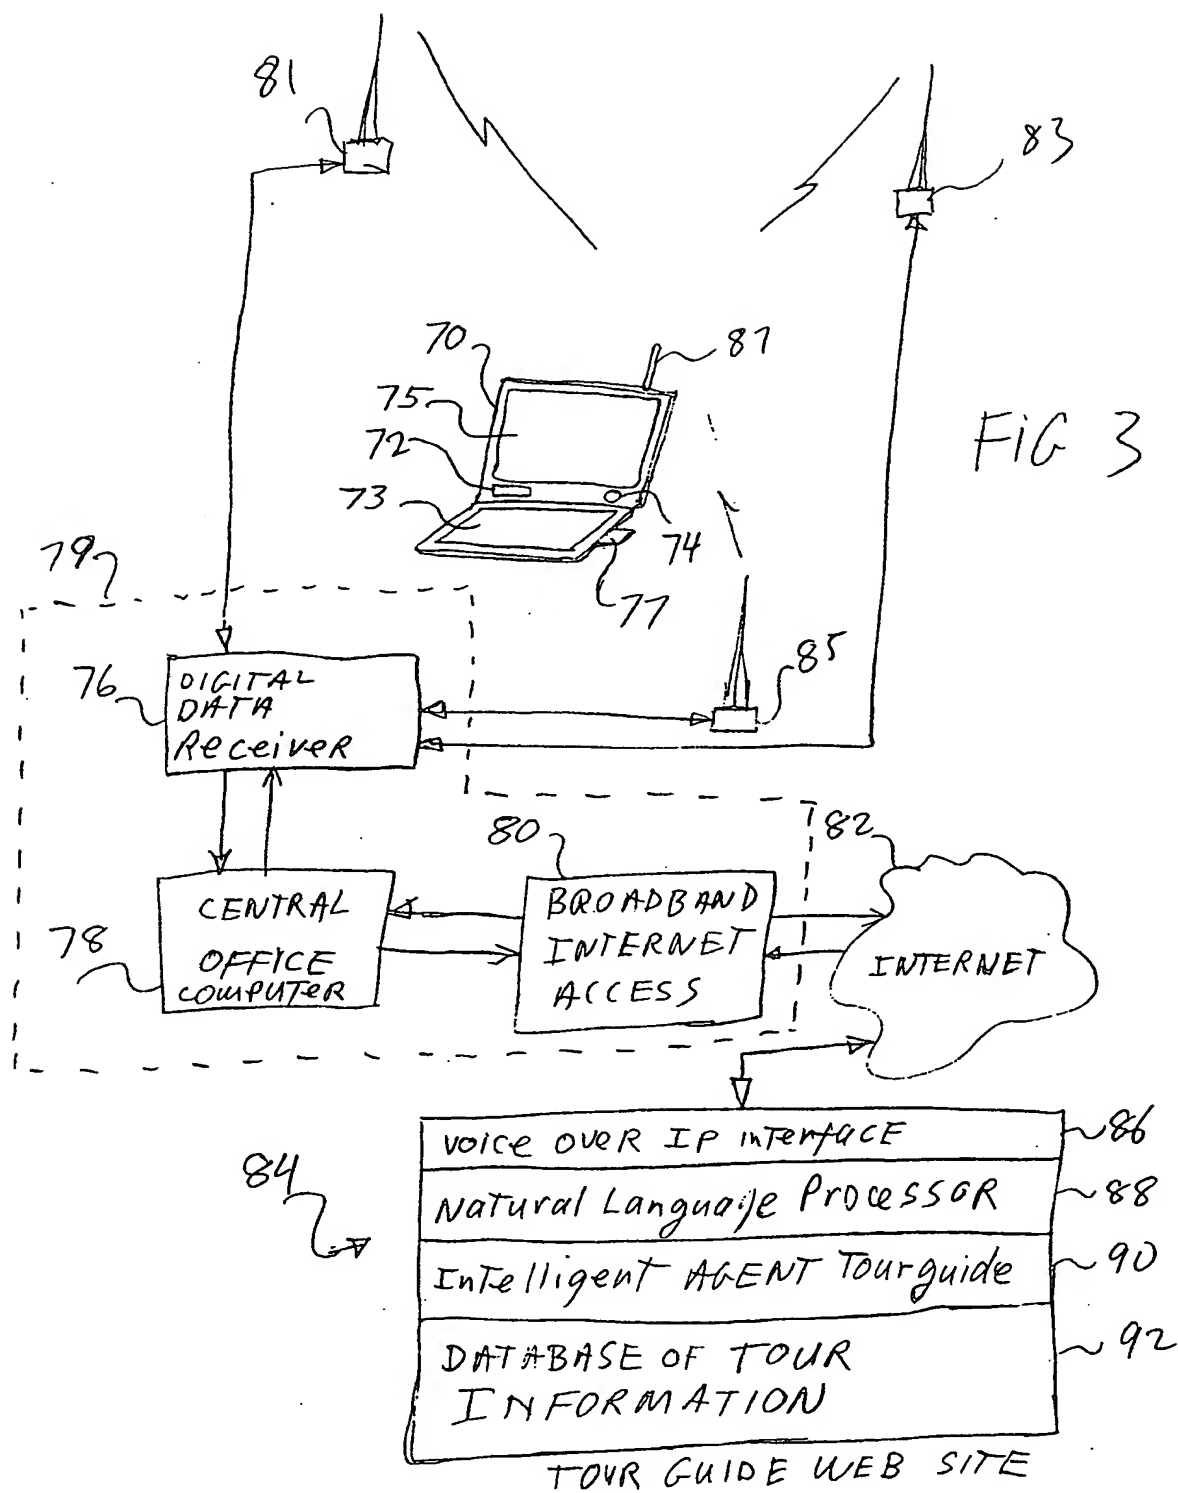 81
83
70
87
75
72
73
74
77
FIG 3
79
85
76
DIGITAL
DATA
Receiver
80
82
CENTRAL
OFFICE
COMPUTER
78
BROADBAND
INTERNET
ACCESS
INTERNET
84
VOICE OVER IP INTERFACE
86
Natural Language Processor
88
Intelligent AGENT Tourguide
90
DATABASE OF TOUR
INFORMATION
92
TOUR GUIDE WEB SITE